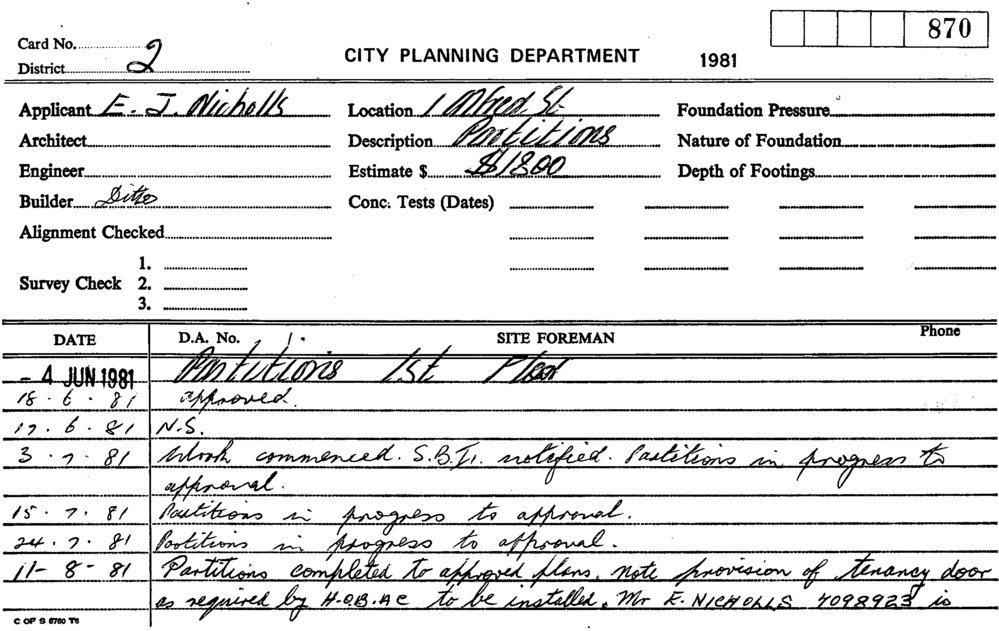 870
Card No.
District 2
CITY PLANNING DEPARTMENT 1981
Applicant E. J. Nicholls Location 1 Alfred St. Foundation Pressure
Architect Description Partitions Nature of Foundation
Engineer Estimate $ $1800 Depth of Footings
Builder Ditto Conc. Tests (Dates)
Alignment Checked
1.
Survey Check 2.
3.
DATE D.A. No. SITE FOREMAN Phone
- 4 JUN 1981 Partitions 1st Floor
18.6.81 approved.
17.6.81 N.S.
3.7.81 Work commenced. S.B.I. notified. Partitions in progress to
approval.
15.7.81 Partitions in progress to approval.
24.7.81 Partitions in progress to approval.
11-8-81 Partitions completed to approved plans. Note provision of tenancy door
as required by H.O.B.AC to be installed. Mr E. NICHOLLS 4098923 is
C OF S 6760 T6